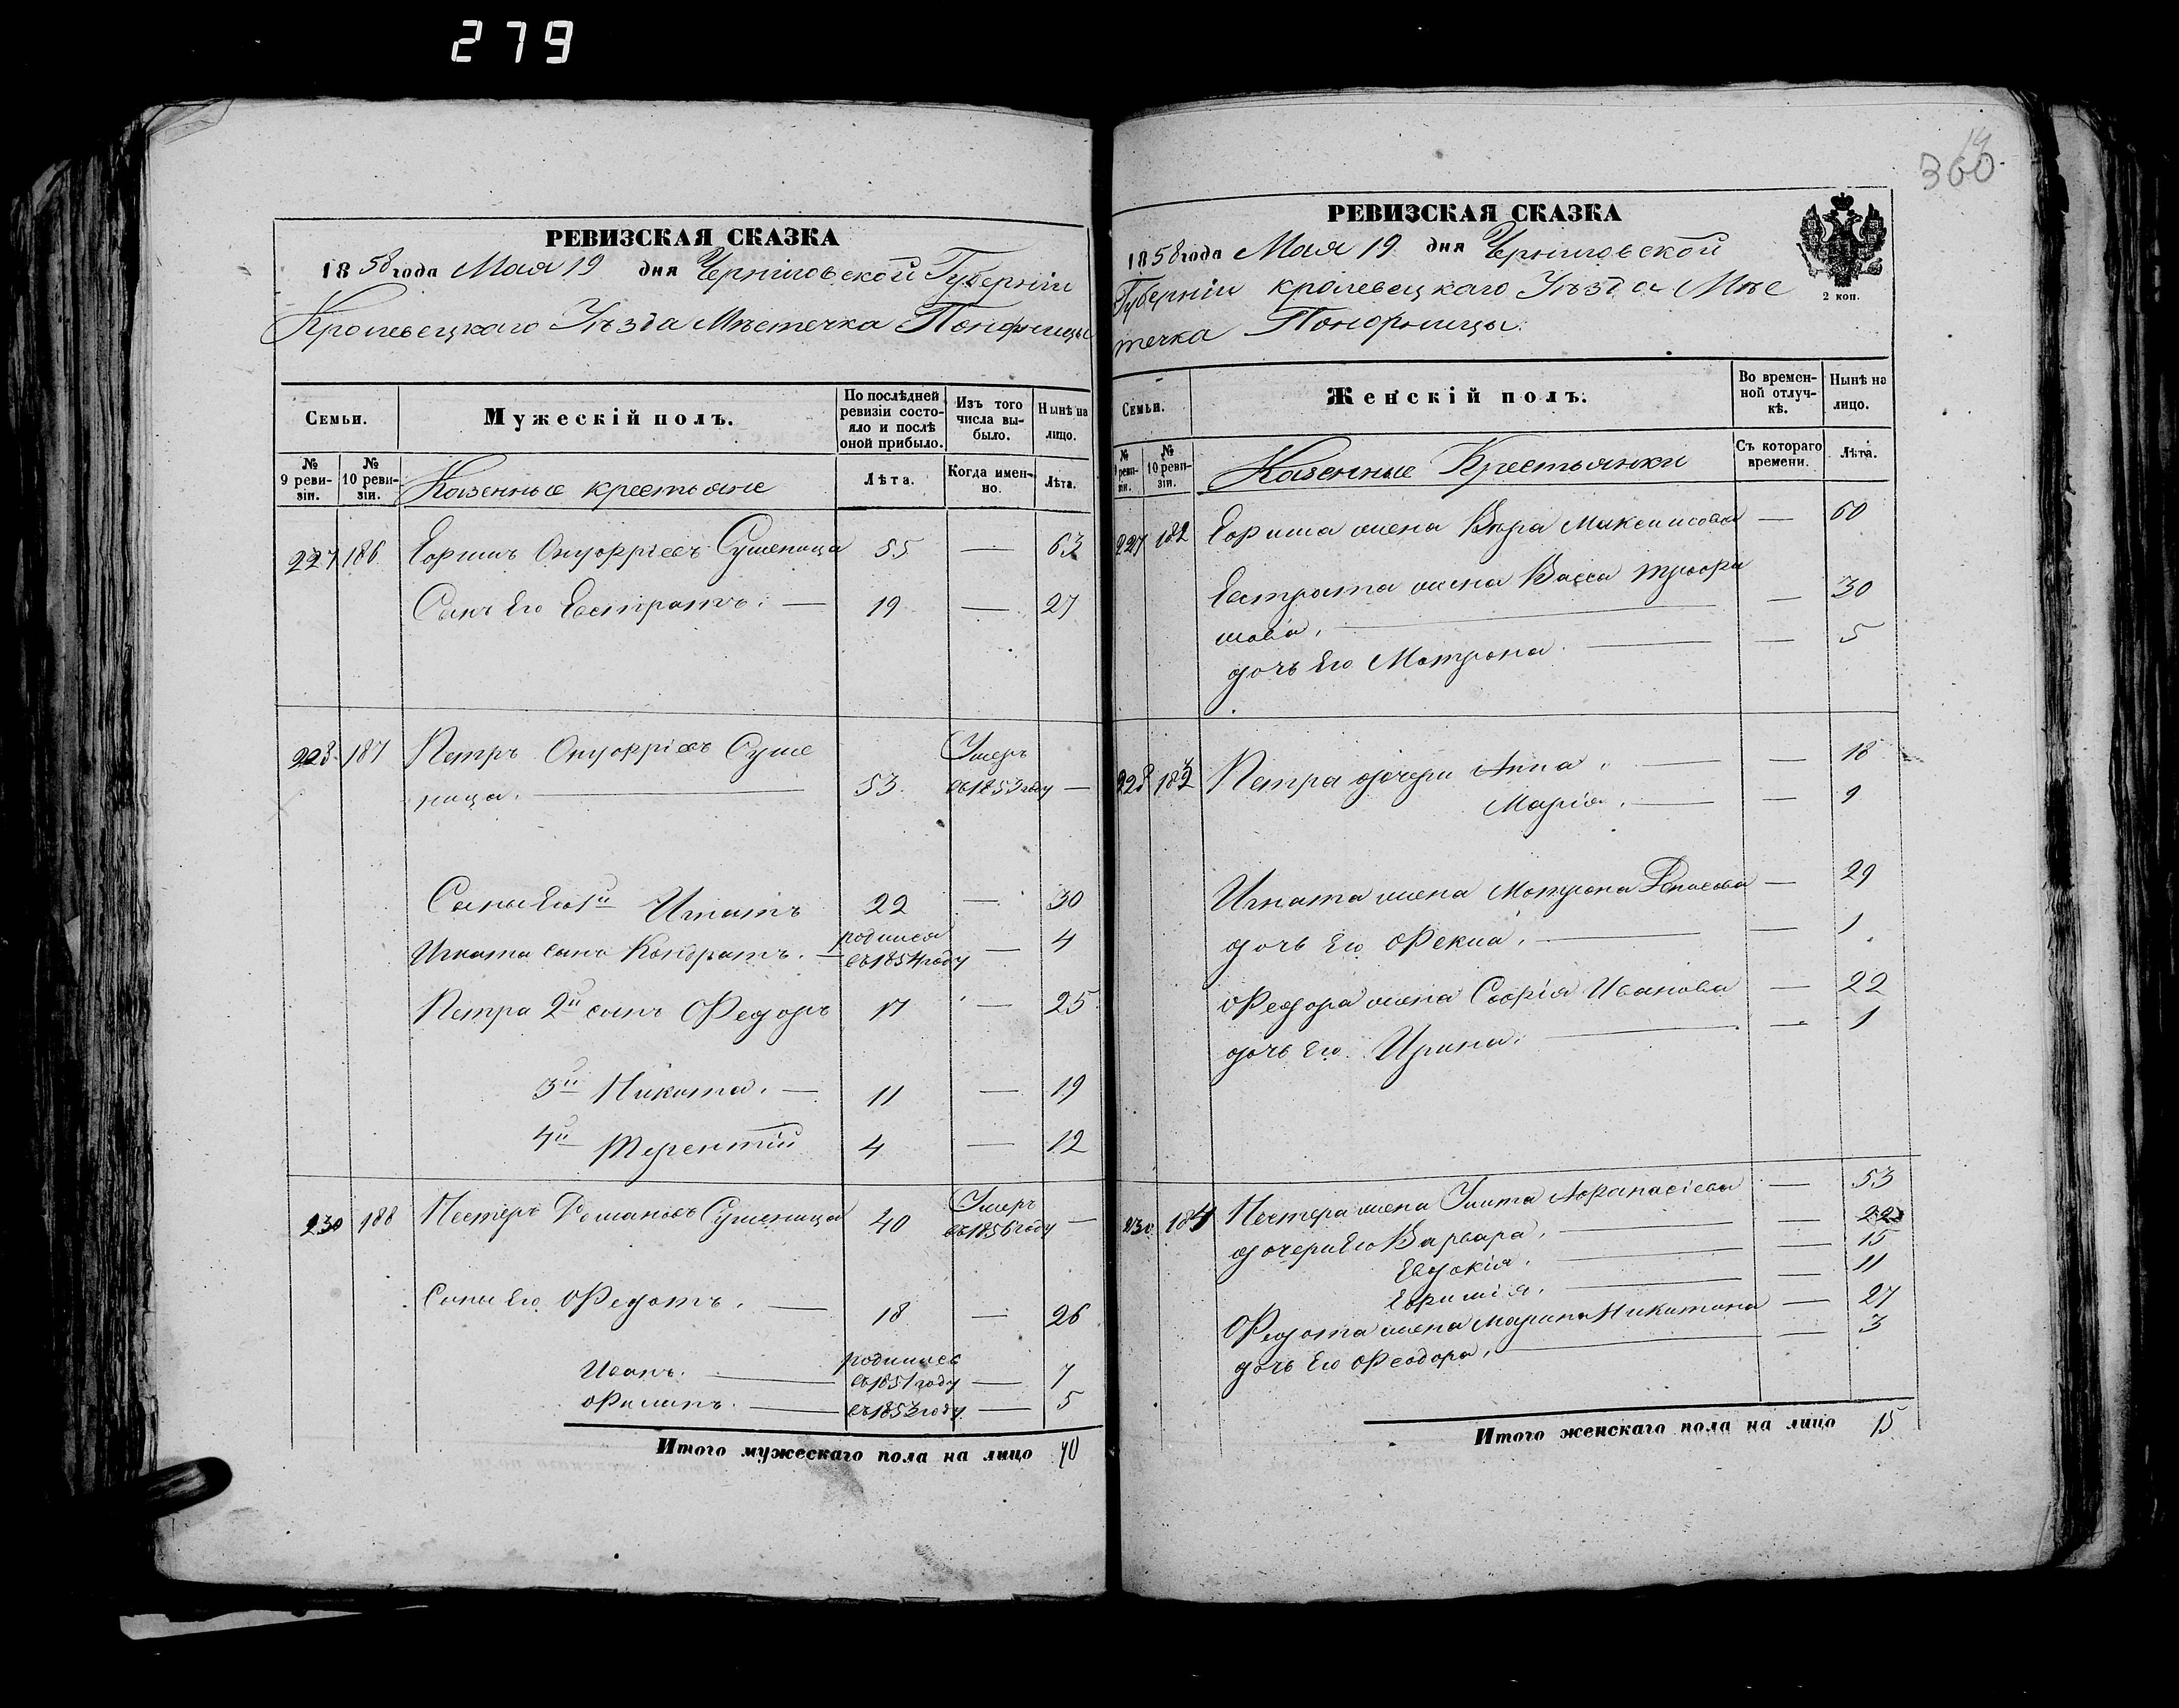 279
360
14
РЕВИЗСКАЯ СКАЗКА
1858 года Мая 19 дня Черниговской Губерніи
Кролевецкаго Уѣзда Мѣстечка Понорницы
Семьи.
Мужескій полъ.
По послѣдней ревизіи состояло и послѣ оной прибыло.
Изъ того числа выбыло.
Нынѣ на лицо.
№ 9 ревизіи.
№ 10 ревизіи.
Казенные крестьяне
Лѣта.
Когда именно.
Лѣта.
227 186 Ефимъ Онуфріевъ Сушеница 55 — 63
Сынъ Его Евстратъ. — 19 — 27
228 187 Петръ Онуфріевъ Суше
ница. — 53. Умеръ въ 1853 году —
Сыны Его 1й Игнатъ 22 — 30
Игната сынъ Кондратъ. — родился въ 1854 году — 4
Петра 2й сынъ Федоръ 17 — 25
3й Никита. — 11 — 19
4й Терентій 4 — 12
230 188 Нестеръ Романовъ Сушеница 40 Умеръ въ 1856 году —
Сыны Его Федотъ. — 18 — 26
Иванъ. — родились въ 1851 году — 7
Филипъ. — въ 1853 году — 5
Итого мужескаго пола на лицо 10
РЕВИЗСКАЯ СКАЗКА
1858 года Мая 19 дня Черниговской
Губерніи кролевецкаго Уѣзда Мѣс
течка Понорницы.
2 коп.
Семьи.
Женскій полъ.
Во временной отлучкѣ.
Нынѣ на лицо.
№ 9 ревизіи.
№ 10 ревизіи.
Казенные Крестьянки
Съ котораго времени.
Лѣта.
227 182 Ефима жена Вѣра Максимова — 60
Евстрата жена Васса Трофи
мова. — — 30
дочь Его Мотрона. — — 5
228 183 Петра дочери Анна. — — 18
Марія. — — 9
Игната жена Мотрона — 29
дочь Его Фекла. — — 1
Федора жена Софія Иванова — 22
дочь Его Ирина. — — 1
230 184 Нестера жена Улита Афанасіева — 53
дочери Его Варвара. — — 22
Евдокія. — — 15
Ефимія. — — 11
Федота жена Марина Никитина — 27
дочь Его Феодора. — — 3
Итого женскаго пола на лицо 15